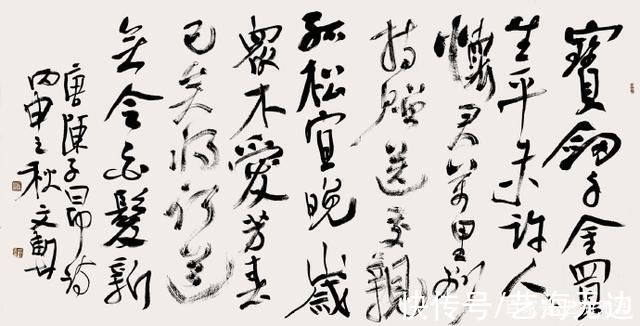 寶劍千金買
生平未許人
懷君萬里别
持贈送交親
孤松宜晚歲
眾木愛芳春
已矣將何道
無令白髮新
唐陳子昂詩
丙申之秋文勳
快传号/艺海无边